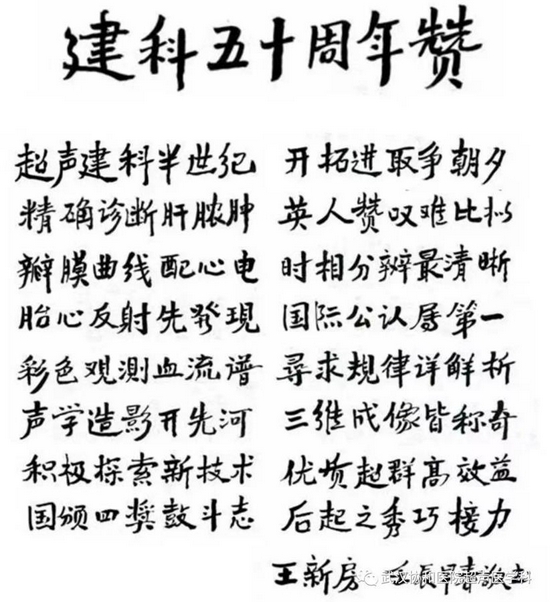 建科五十周年赞
超声建科半世纪 开拓进取争朝夕
精确诊断肝脓肿 英人赞叹难比拟
瓣膜曲线配心电 时相分辨最清晰
胎心反射先發現 国际公认属第一
彩色观测血流谱 尋求规律详解析
声学造影开先河 三维成像皆称奇
积极探索新技术 优质超群高效益
国颁四奖鼓斗志 后起之秀巧接力
王新房
武汉协和医院超声医学科